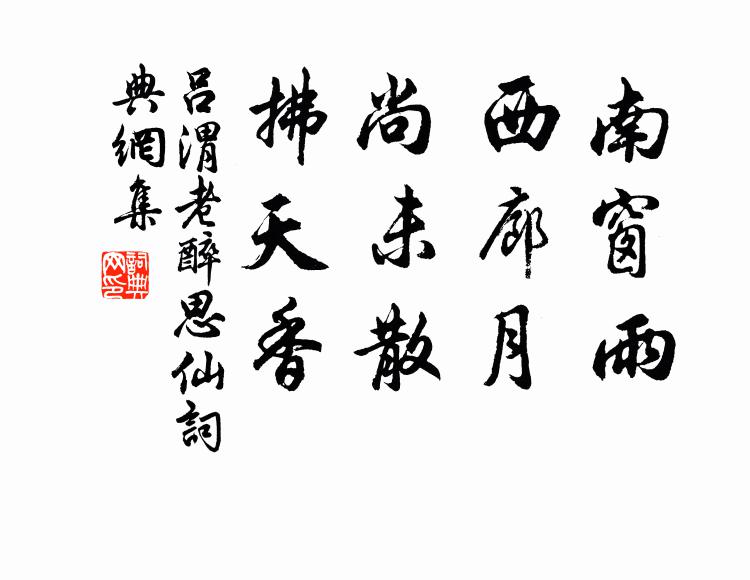 南窗雨
西廊月
尚未散
拂天香
呂渭老醉思仙詞
典網集
詞典網印